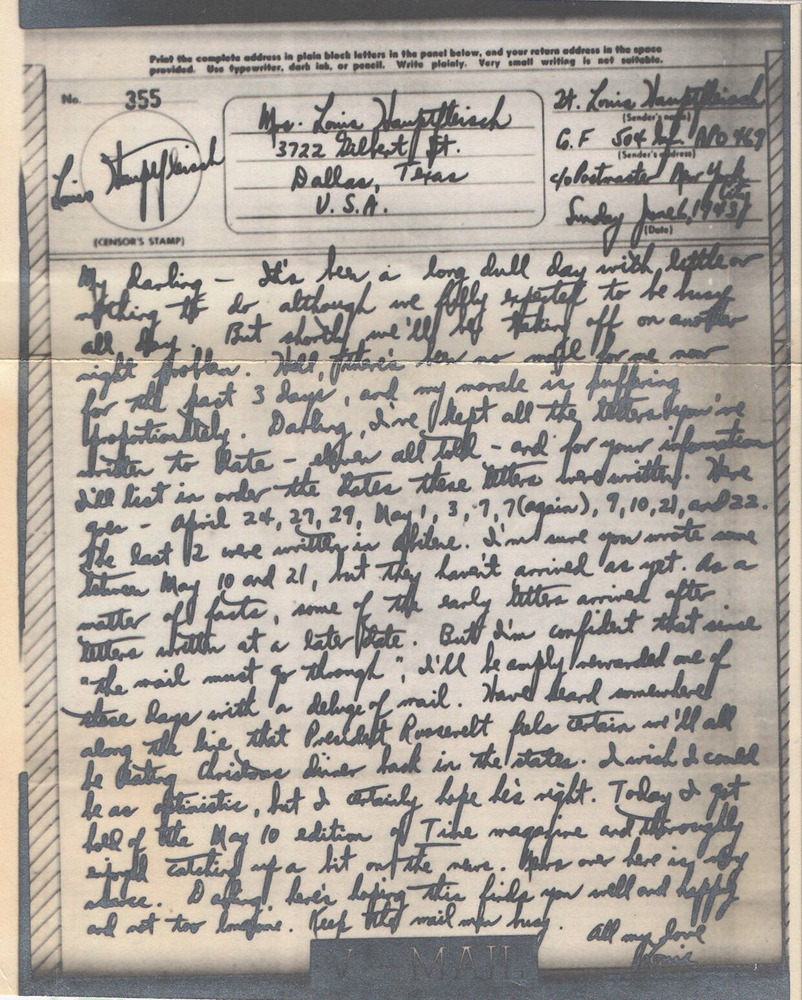 Print the complete address in plain block letters in the panel below, and your return address in the space
provided. Use typewriter, dark ink, or pencil. Write plainly. Very small writing is not suitable.
No. 355
Louis Hauptfleisch
(CENSOR'S STAMP)
Mrs. Louis Hauptfleisch
3722 Gilbert St.
Dallas, Texas
U.S.A.
Lt. Louis Hauptfleisch
(Sender's name)
504 APO 469
(Sender's address)
c/o Postmaster New York
City
Sunday June 6, 1943
(Date)
My Darling — It's been a long dull day with little or
nothing to do although we fully expected to be busy
all day. But shortly we'll be taking off on another
night problem. Well, there's been no mail for me now
for the past 3 days, and my morale is suffering
proportionately. Darling, I've kept all the letters you've
written to date — eleven all told — and for your information
I'll list in order the dates these letters were written. Here
goes — April 24, 27, 29, May 1, 3, 7, 7 (again), 9, 10, 21, and 22.
The last 2 were written in Abilene. I'm sure you wrote some
between May 10 and 21, but they haven't arrived as yet. As a
matter of facts, some of the early letters arrived after
letters written at a later date. But I'm confident that since
"the mail must go through", I'll be amply rewarded one of
these days with a deluge of mail. Have heard somewhere
along the line that President Roosevelt feels certain we'll all
be eating Christmas dinner back in the states. I wish I could
be as optimistic, but I certainly hope he's right. Today I got
hold of the May 10 edition of Time magazine and thoroughly
enjoyed catching up a bit on the news. News over here is very
scarce. Darling, here's hoping this finds you well and happy
and not too lonesome. Keep the mail man busy.
All my love
Louie
V - MAIL